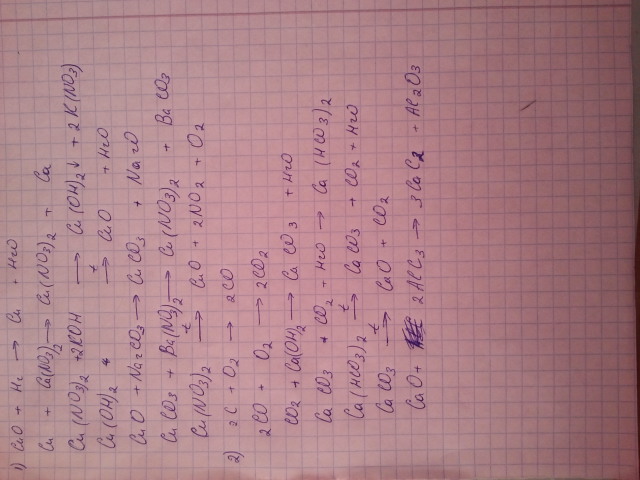 1) CuO + H2 → Cu + H2O
Cu + Ca(NO3)2 → Cu(NO3)2 + Ca
Cu(NO3)2 + 2KOH → Cu(OH)2↓ + 2K(NO3)
Cu(OH)2 t→ CuO + H2O
CuO + Na2CO3 → CuCO3 + Na2O
CuCO3 + Ba(NO3)2 → Cu(NO3)2 + BaCO3
Cu(NO3)2 t→ CuO + 2NO2 + O2
2) 2C + O2 → 2CO
2CO + O2 → 2CO2
CO2 + Ca(OH)2 → CaCO3 + H2O
CaCO3 + CO2 + H2O → Ca(HCO3)2
Ca(HCO3)2 t→ CaCO3 + CO2 + H2O
CaCO3 t→ CaO + CO2
CaO + 2AlCl3 → 3CaCl2 + Al2O3